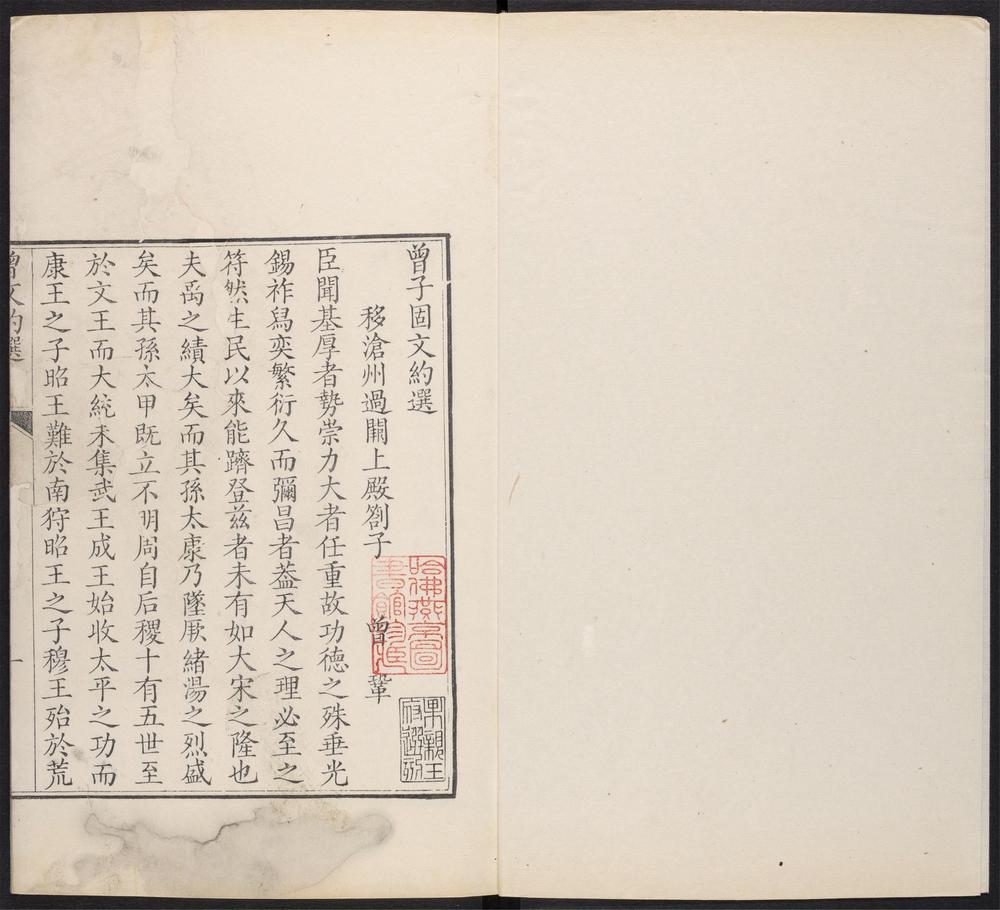 曾子固文約選
移滄州過闕上殿劄子　曾鞏
臣聞基厚者勢崇力大者任重故功德之殊垂光
錫祚舄奕繁衍久而彌昌者葢天人之理必至之
符然生民以來能躋登兹者未有如大宋之隆也
夫禹之績大矣而其孫太康乃墜厥緒湯之烈盛
矣而其孫太甲既立不明周自后稷十有五世至
於文王而大統未集武王成王始收太平之功而
康王之子昭王難於南狩昭王之子穆王殆於荒
曾文約選
一
哈佛燕京圖
書館珍藏
果親王
府選刻